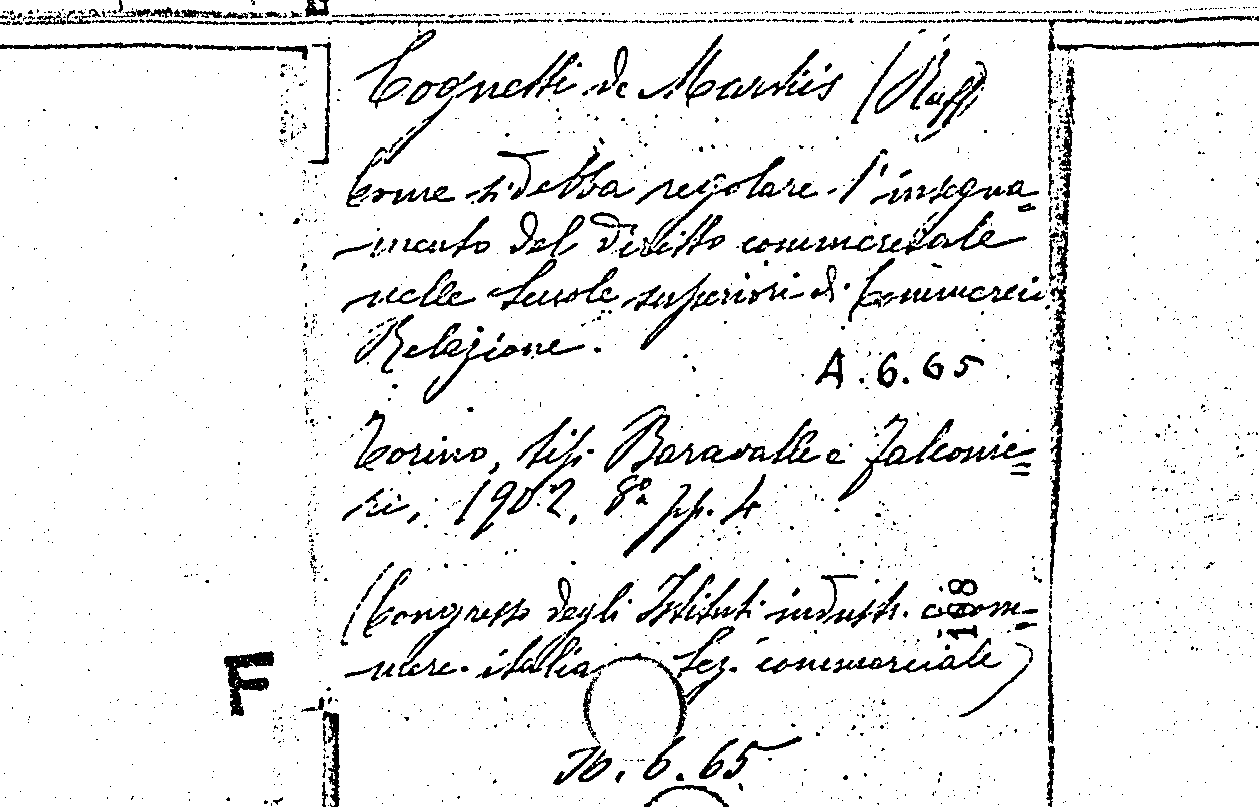 Cognetti de Martiis (Raff)
Come si debba regolare l'insegna=
mento del diritto commerciale
nelle Scuole superiori di Commerci
Relazione.
A. 6. 65
Torino, tip. Baravalle e Falconie=
ri, 1902, 8º pp. 4
(Congresso degli Istituti industr. e com=
merc. italia Sez. commerciale)
188
F
6. 65